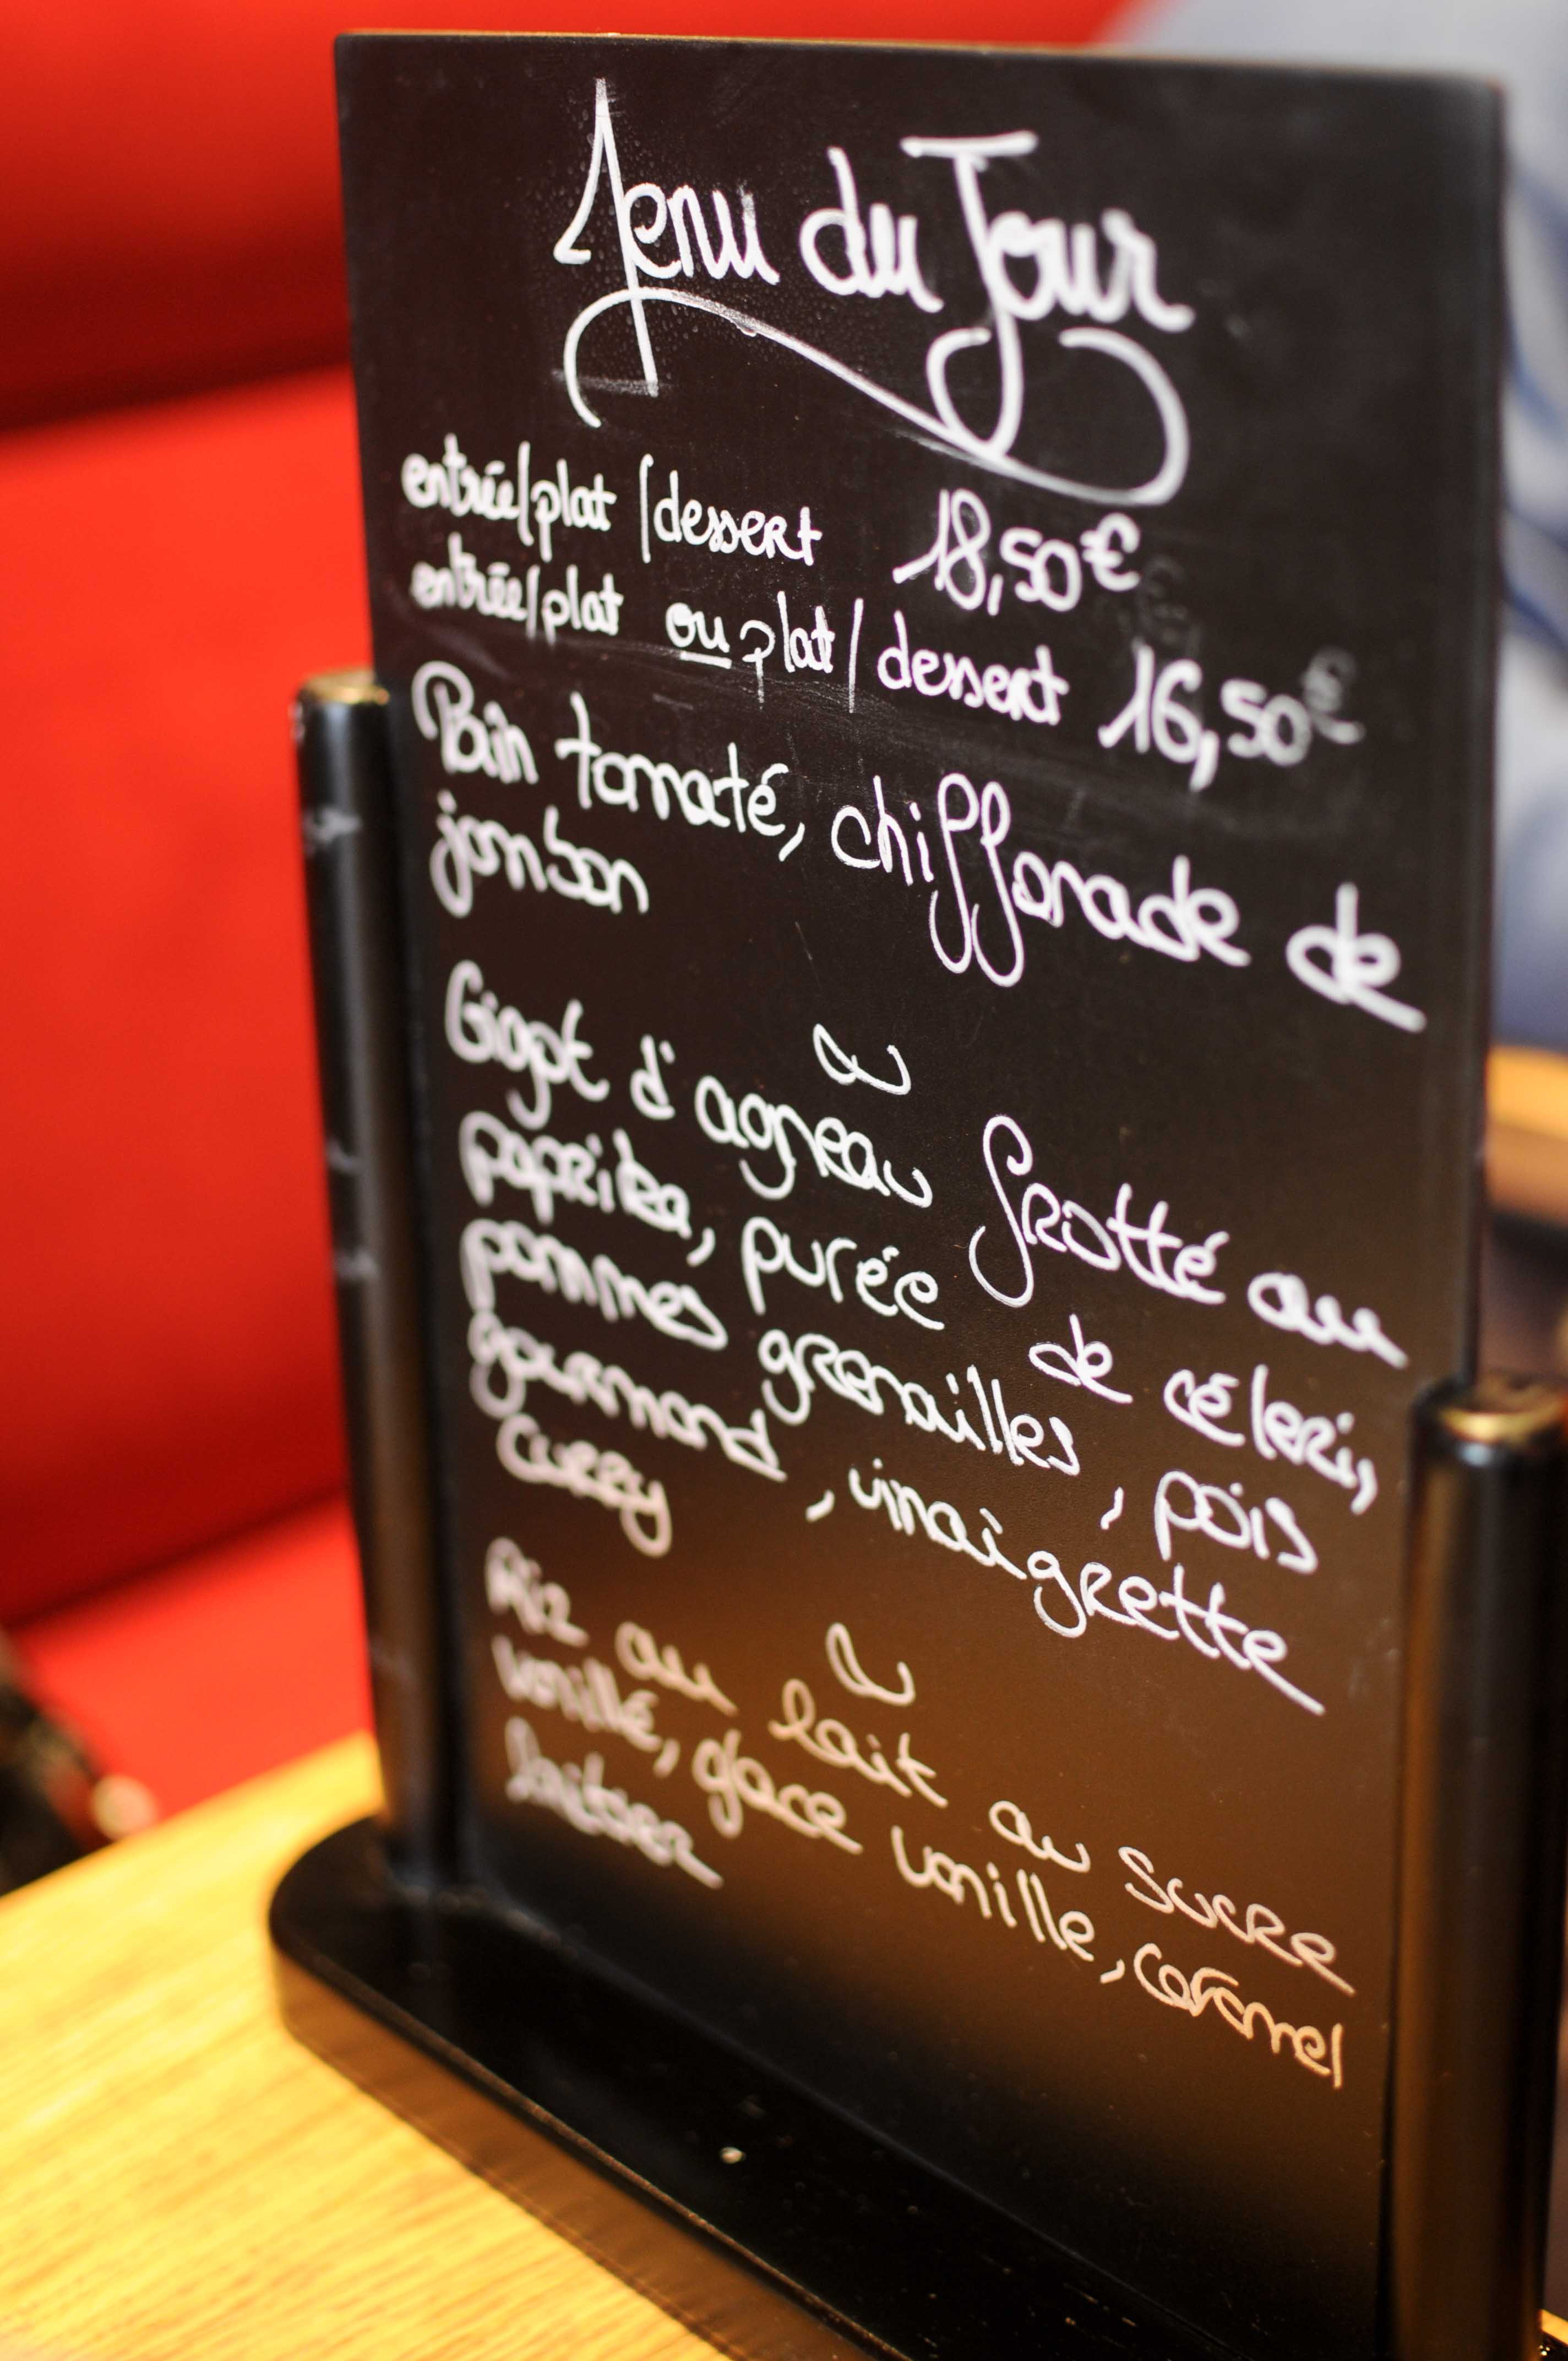 Menu du Jour
entrée/plat/dessert 18,50€
entrée/plat ou plat/dessert 16,50€
Pain tomaté, chiffonade de
jambon
Gigot d'agneau frotté au
paprika, purée de céleri,
pommes grenailles, pois
gourmand, vinaigrette
curry
Riz au lait au sucre
vanillé, glace vanille, caramel
laitier